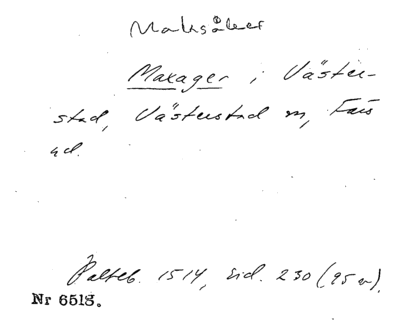 Maksåker
Maxager i Väster-
stad, Västerstad sn, Färs
hd.
Palteb. 1514, sid. 230 (95 v).
Nr 6518.